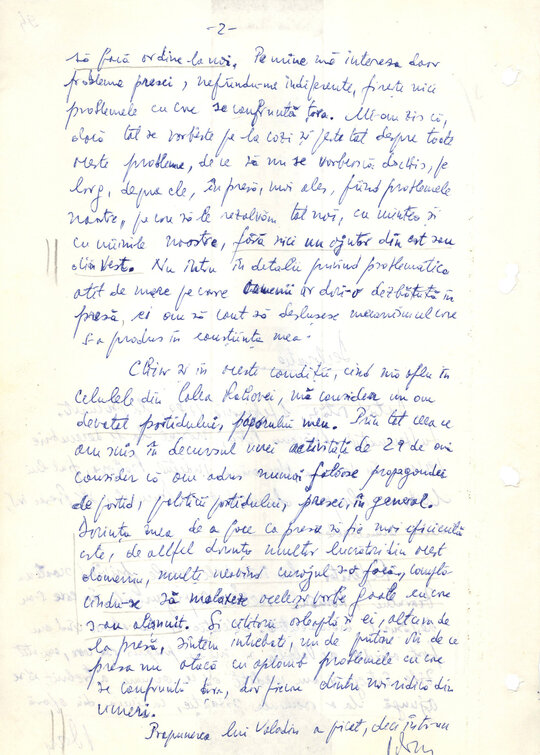 -2-
să facă ordine la noi. Pe mine mă interesa doar
problema presei, nefiindu-mi indiferente, firește nici
problemele cu care se confruntă țara. Mi-am zis că,
dacă tot se vorbește pe la cozi și peste tot despre toate
aceste probleme, de ce să nu se vorbească deschis, pe
larg, despre ele, în presă, mai ales, fiind problemele
noastre, pe care să le rezolvăm tot noi, cu mintea și
cu mîinile noastre, fără nici un ajutor din est sau
din vest. Nu intru în detalii privind problematica
atît de mare pe care oamenii ar dori-o dezbătută în
presă, ci am să caut să deslușesc mecanismul care
s-a produs în conștiința mea.
Chiar și în aceste condiții, cînd mă aflu în
celulele din Calea Rahovei, mă consider un om
devotat partidului, poporului meu. Prin tot ceea ce
am scris în decursul unei activități de 29 de ani
consider că am adus numai foloase propagandei
de partid, politicii partidului, presei, în general.
Dorința mea de a face ca presa să fie mai eficientă
este, de altfel dorința multor lucrători din acest
domeniu, mulți neavînd curajul s-o facă, complă-
cîndu-se să acelezi vorbe goale cu care
s-au obișnuit. Și cîteodată și ei, alături de
la presă, sîntem întrebați, un de pildă de ce
presa nu atacă cu aplomb problemele cu care
se confruntă țara, dar fiecare dintre noi ridică din
umeri.
Propunerea lui a picat, deci într-un